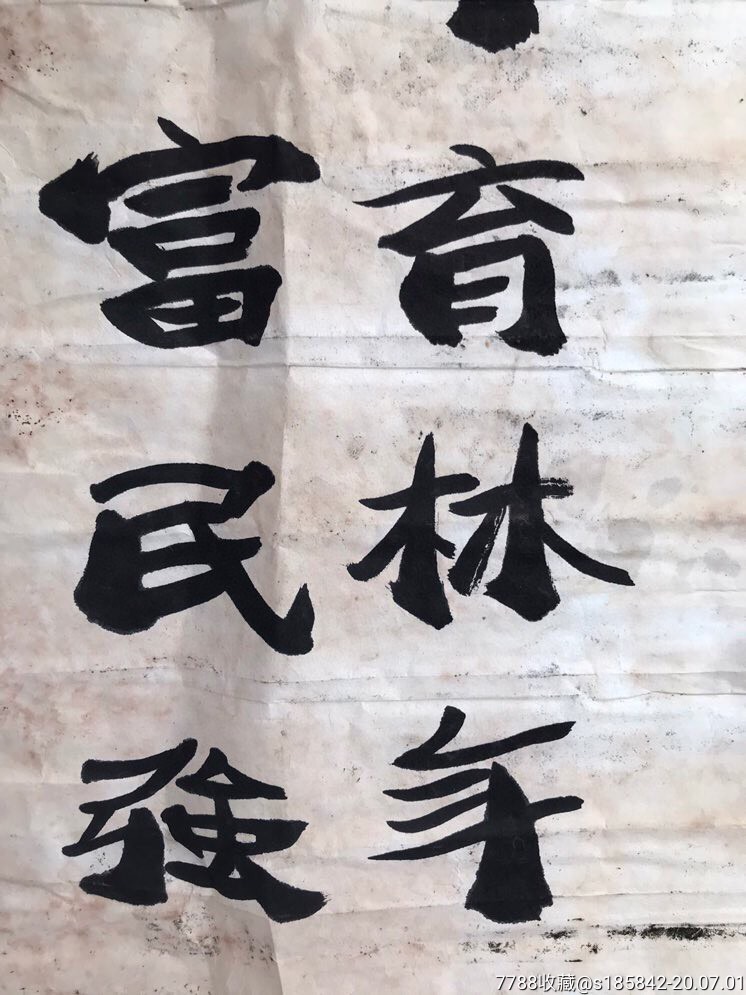 育林年
富民強
7788收藏@s185842-20.07.01